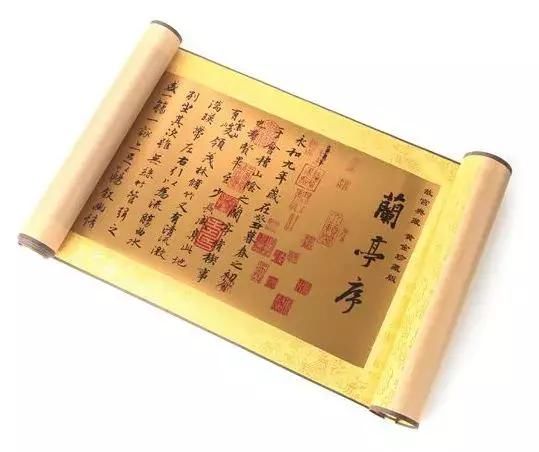 故宮典藏 黃金珍藏版
蘭亭序
永和九年歲在癸丑暮春之初會
于會稽山陰之蘭亭脩稧事
也群賢畢至少長咸集此地
有崇山峻領茂林脩竹又有清流激
湍暎帶左右引以為流觴曲水
列坐其次雖無絲竹管弦之
盛一觴一詠亦足以暢敘幽情